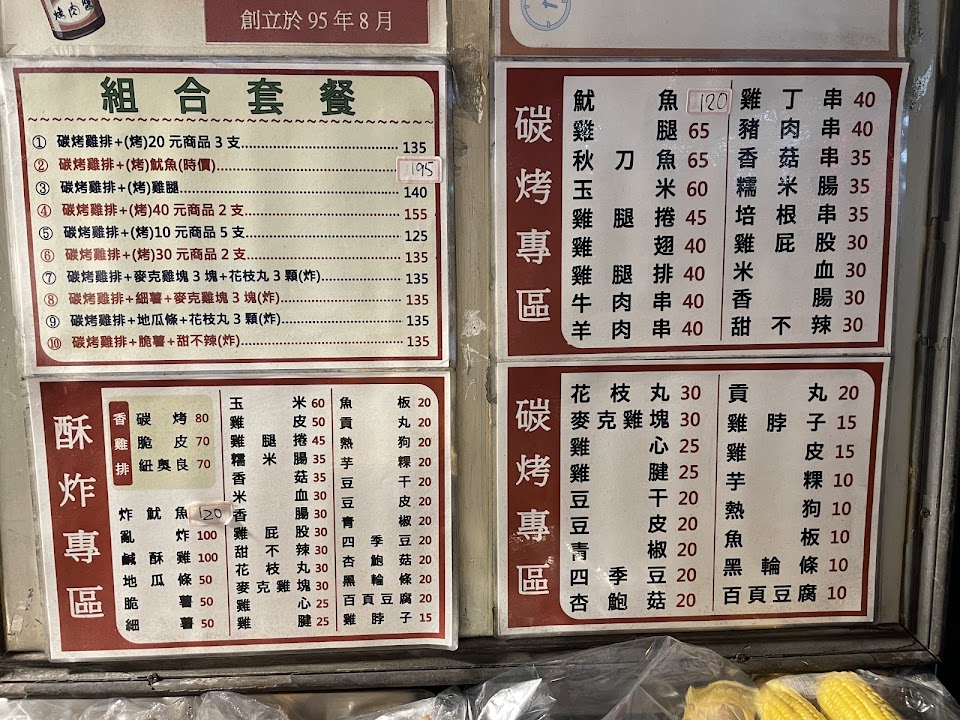 烤肉醬
創立於 95 年 8 月
組合套餐
① 碳烤雞排+(烤)20 元商品 3 支 135
② 碳烤雞排+(烤)魷魚(時價) 195
③ 碳烤雞排+(烤)雞腿 140
④ 碳烤雞排+(烤)40 元商品 2 支 155
⑤ 碳烤雞排+(烤)10 元商品 5 支 125
⑥ 碳烤雞排+(烤)30 元商品 2 支 135
⑦ 碳烤雞排+麥克雞塊 3 塊+花枝丸 3 顆(炸) 135
⑧ 碳烤雞排+細薯+麥克雞塊 3 塊(炸) 135
⑨ 碳烤雞排+地瓜條+花枝丸 3 顆(炸) 135
⑩ 碳烤雞排+脆薯+甜不辣(炸) 135
碳烤專區
魷魚 120
雞腿 65
秋刀魚 65
玉米 60
雞腿捲 45
雞翅 40
雞腿排 40
牛肉串 40
羊肉串 40
雞丁串 40
豬肉串 40
香菇串 35
糯米腸 35
培根串 35
雞屁股 30
米血 30
香腸 30
甜不辣 30
酥炸專區
香雞排
碳烤 80
脆皮 70
紐奧良 70
炸魷魚 120
亂炸 100
鹹酥雞 100
地瓜條 50
脆薯 50
細薯 50
玉米 60
雞皮 50
雞腿捲 45
糯米腸 35
香菇 35
米血 30
香腸 30
雞屁股 30
甜不辣 30
花枝丸 30
麥克雞塊 30
雞心 25
雞腱 25
魚板 20
貢丸 20
熱狗 20
芋粿 20
豆干 20
豆皮 20
青椒 20
四季豆 20
杏鮑菇 20
黑輪條 20
百頁豆腐 20
雞脖子 15
碳烤專區
花枝丸 30
麥克雞塊 30
雞心 25
雞腱 25
豆干 20
豆皮 20
青椒 20
四季豆 20
杏鮑菇 20
貢丸 20
雞脖子 15
雞皮 15
芋粿 10
熱狗 10
魚板 10
黑輪條 10
百頁豆腐 10